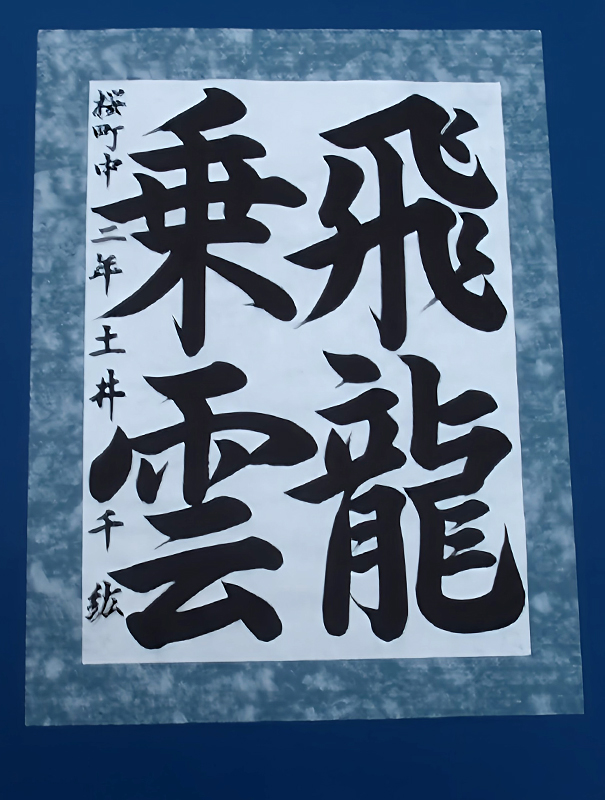 飛龍
乗雲
桜町中二年土井千紘